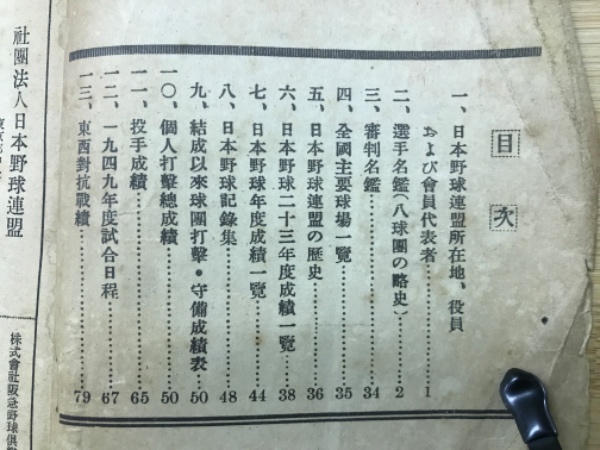 目次
一、日本野球連盟所在地、役員
および會員代表者……1
二、選手名鑑(八球團の略史)……2
三、審判名鑑……34
四、全國主要球場一覽……35
五、日本野球連盟の歴史……36
六、日本野球二十三年度成績一覽……38
七、日本野球年度成績一覽……44
八、日本野球記錄集……48
九、結成以來球團打擊・守備成績表……50
一〇、個人打擊總成績……50
一一、投手成績……65
一二、一九四九年度試合日程……67
一三、東西對抗戰績……79
社團法人日本野球連盟
株式會社阪急野球俱